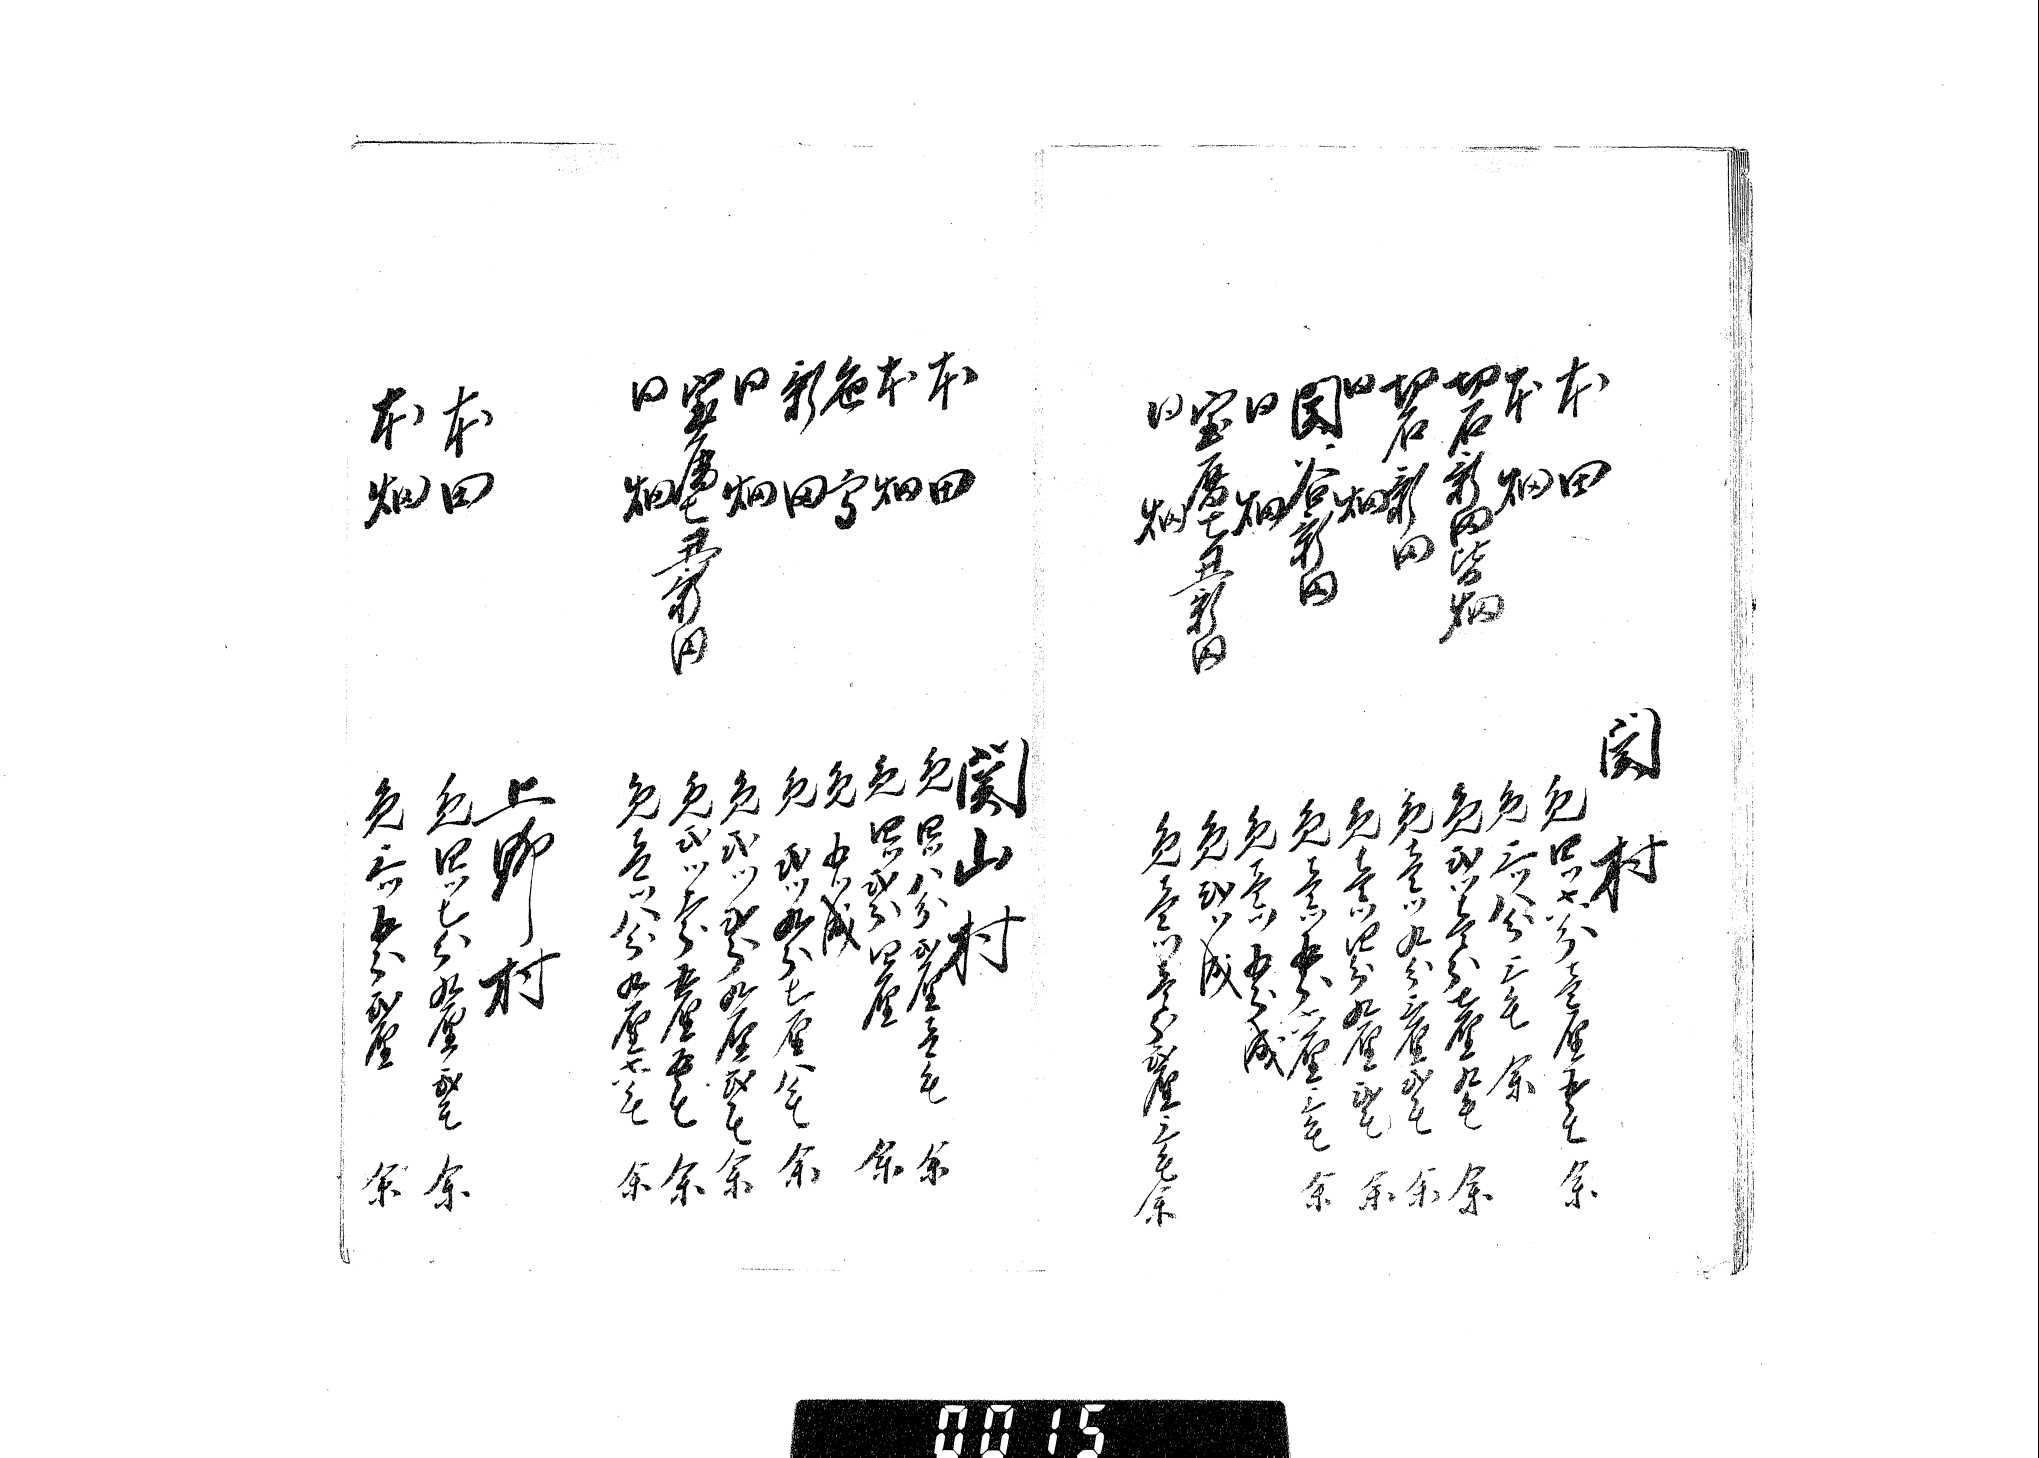 関村
本田　免四ツ六分壱厘五毛余
本畑　免三ツ八分三毛余
切石新田皆畑　免弐ツ壱分七厘九毛余
切石新田　免壱ツ九分三厘弐毛余
同畑　免壱ツ四分九厘弐毛余
関ノ谷新田　免壱ツ五分六厘三毛余
同畑　免壱ツ五分成
宝暦七丑新田　免弐ツ成
同畑　免壱ツ壱分弐厘三毛余
関山村
本田　免四ツ八分弐厘壱毛余
本畑　免四ツ弐分四厘余
色高　免五ツ成
新田　免弐ツ九分七厘八毛余
同畑　免弐ツ弐分九厘弐毛余
宝暦七丑新田　免弐ツ壱分五厘五毛余
同畑　免壱ツ八分九厘六毛余
上野村
本田　免四ツ七分九厘弐毛余
本畑　免三ツ五分弐厘余
0015